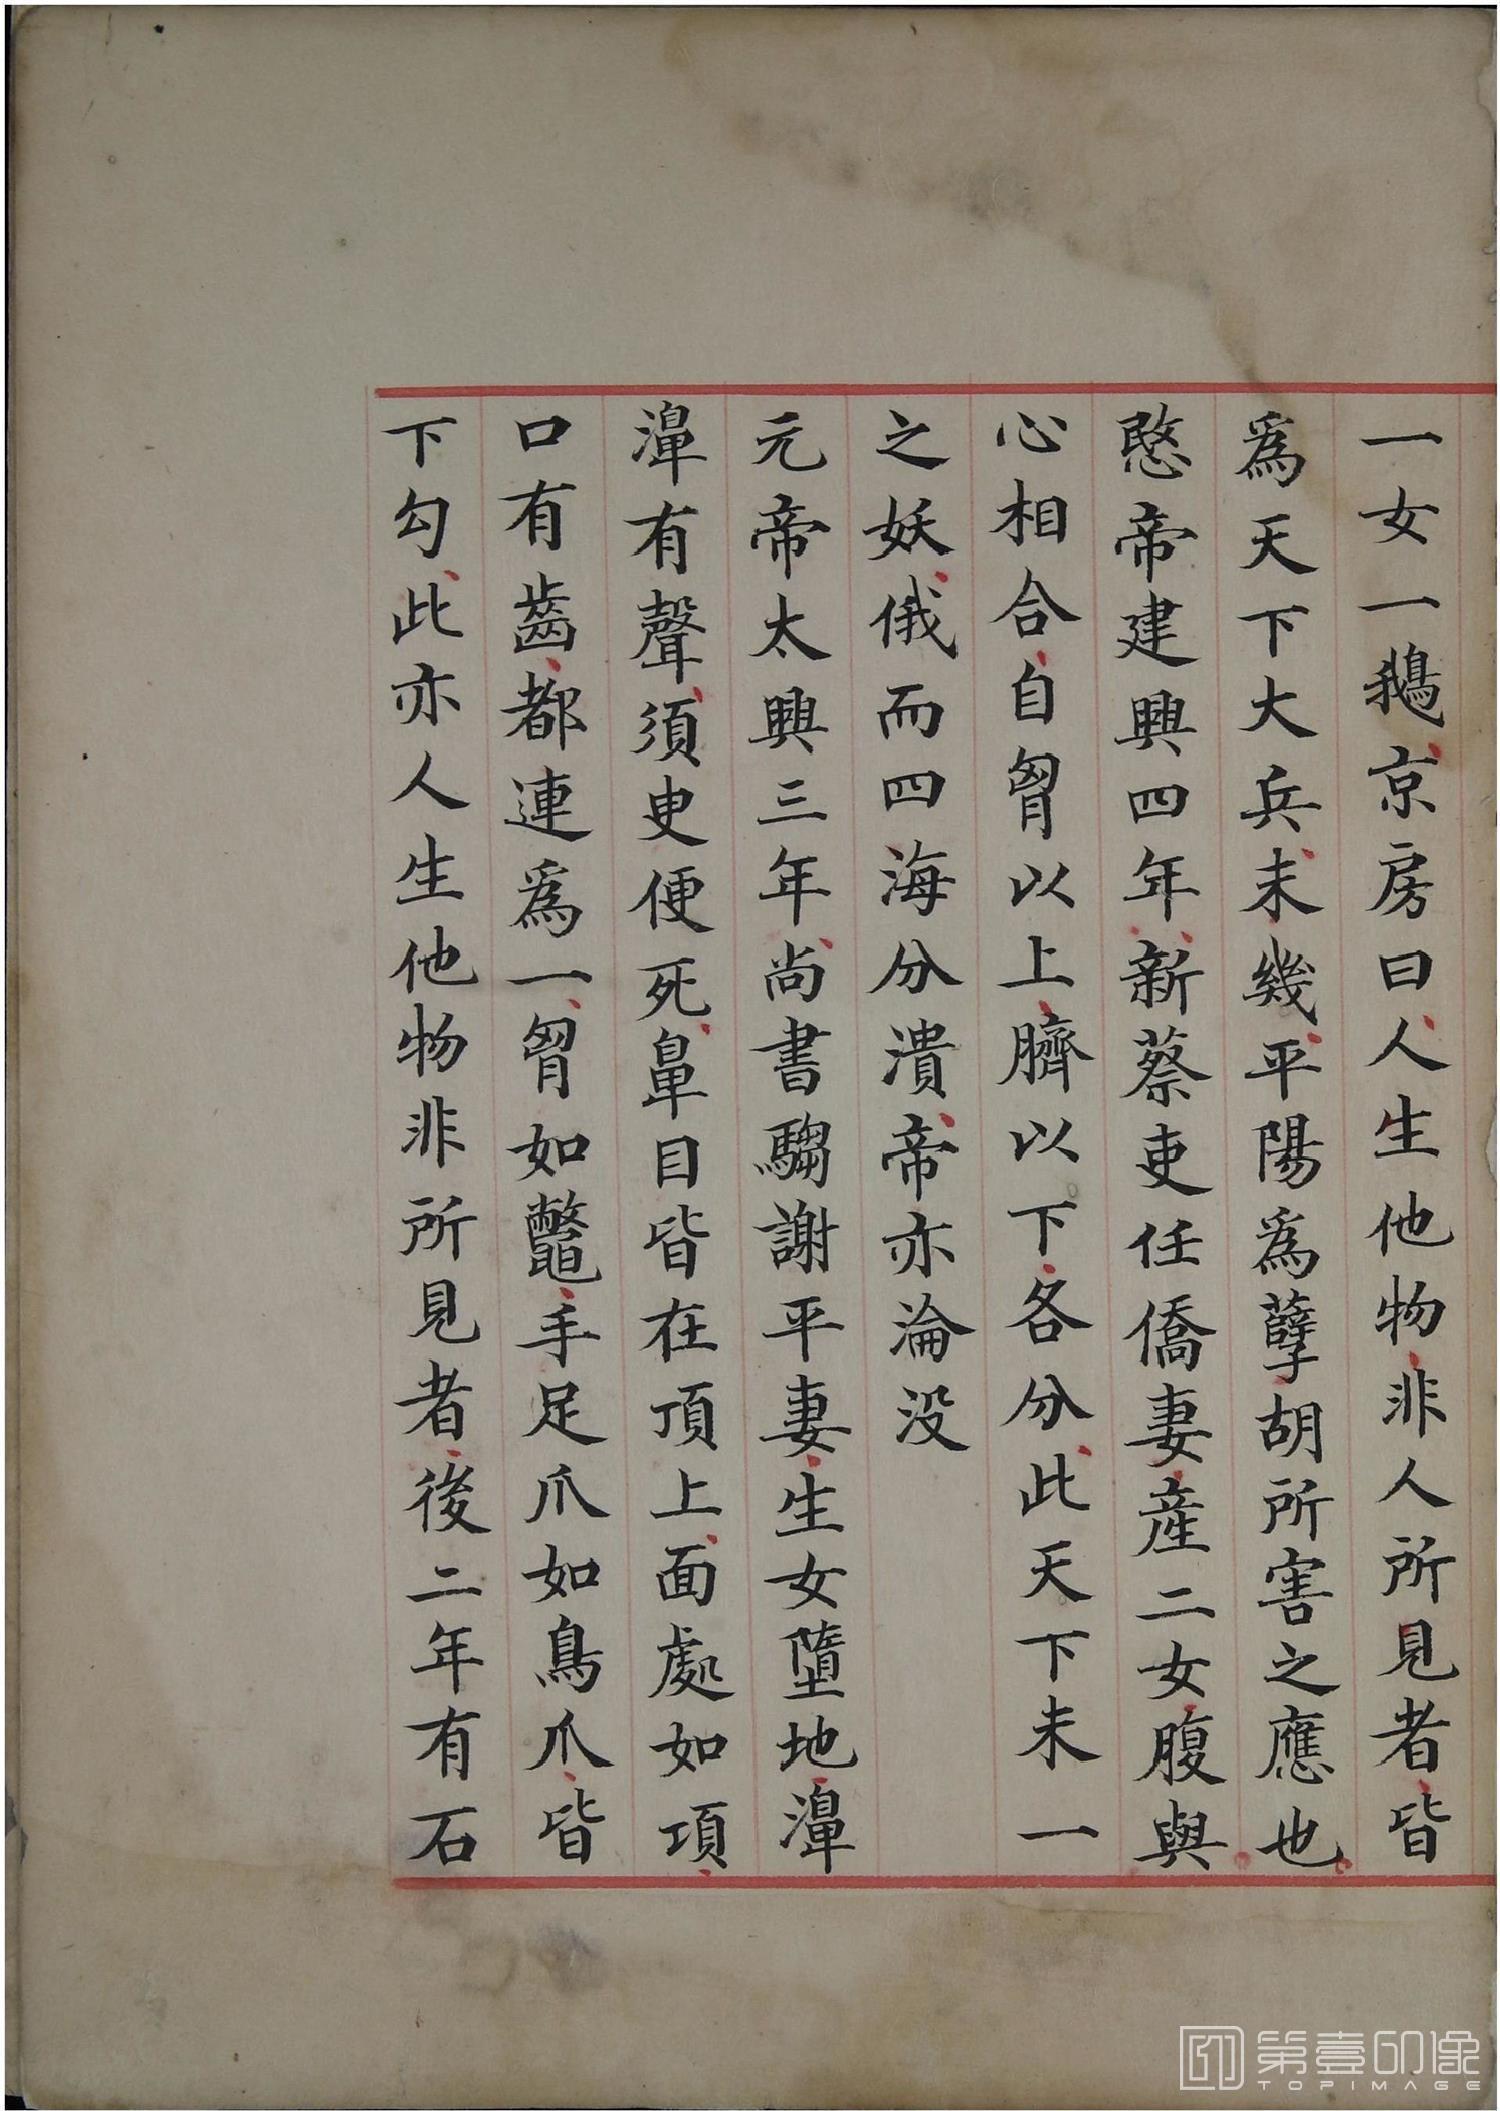 一女一鵝京房曰人生他物非人所見者皆
爲天下大兵未幾平陽爲孽胡所害之應也
愍帝建興四年新蔡吏任僑妻產二女腹與
心相合自胷以上臍以下各分此天下未一
之妖俄而四海分潰帝亦淪没
元帝太興三年尚書騶謝平妻生女墮地濞
濞有聲須臾便死鼻目皆在頂上面處如項
口有齒都連爲一胷如鼈手足爪如鳥爪皆
下勾此亦人生他物非所見者後二年有石
第壹印像
TOPIMAGE